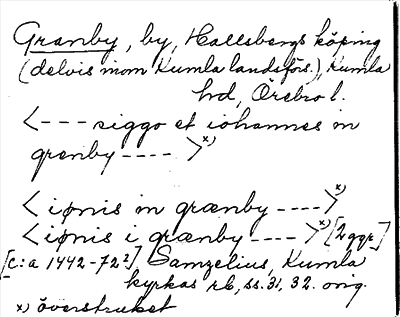 Granby, by, Hallsbergs köping
(delvis inom Kumla landsförs.), Kumla
hd, Örebro l.
<--- siggo et iohannes in
grænby ---- >x)
<iønis in grænby ---->x)
<iønis i grænby ---->x) [2 ggr]
[c:a 1442-72?] Samzelius, Kumla
kyrkas rb, ss. 31, 32. orig.
x) överstruket